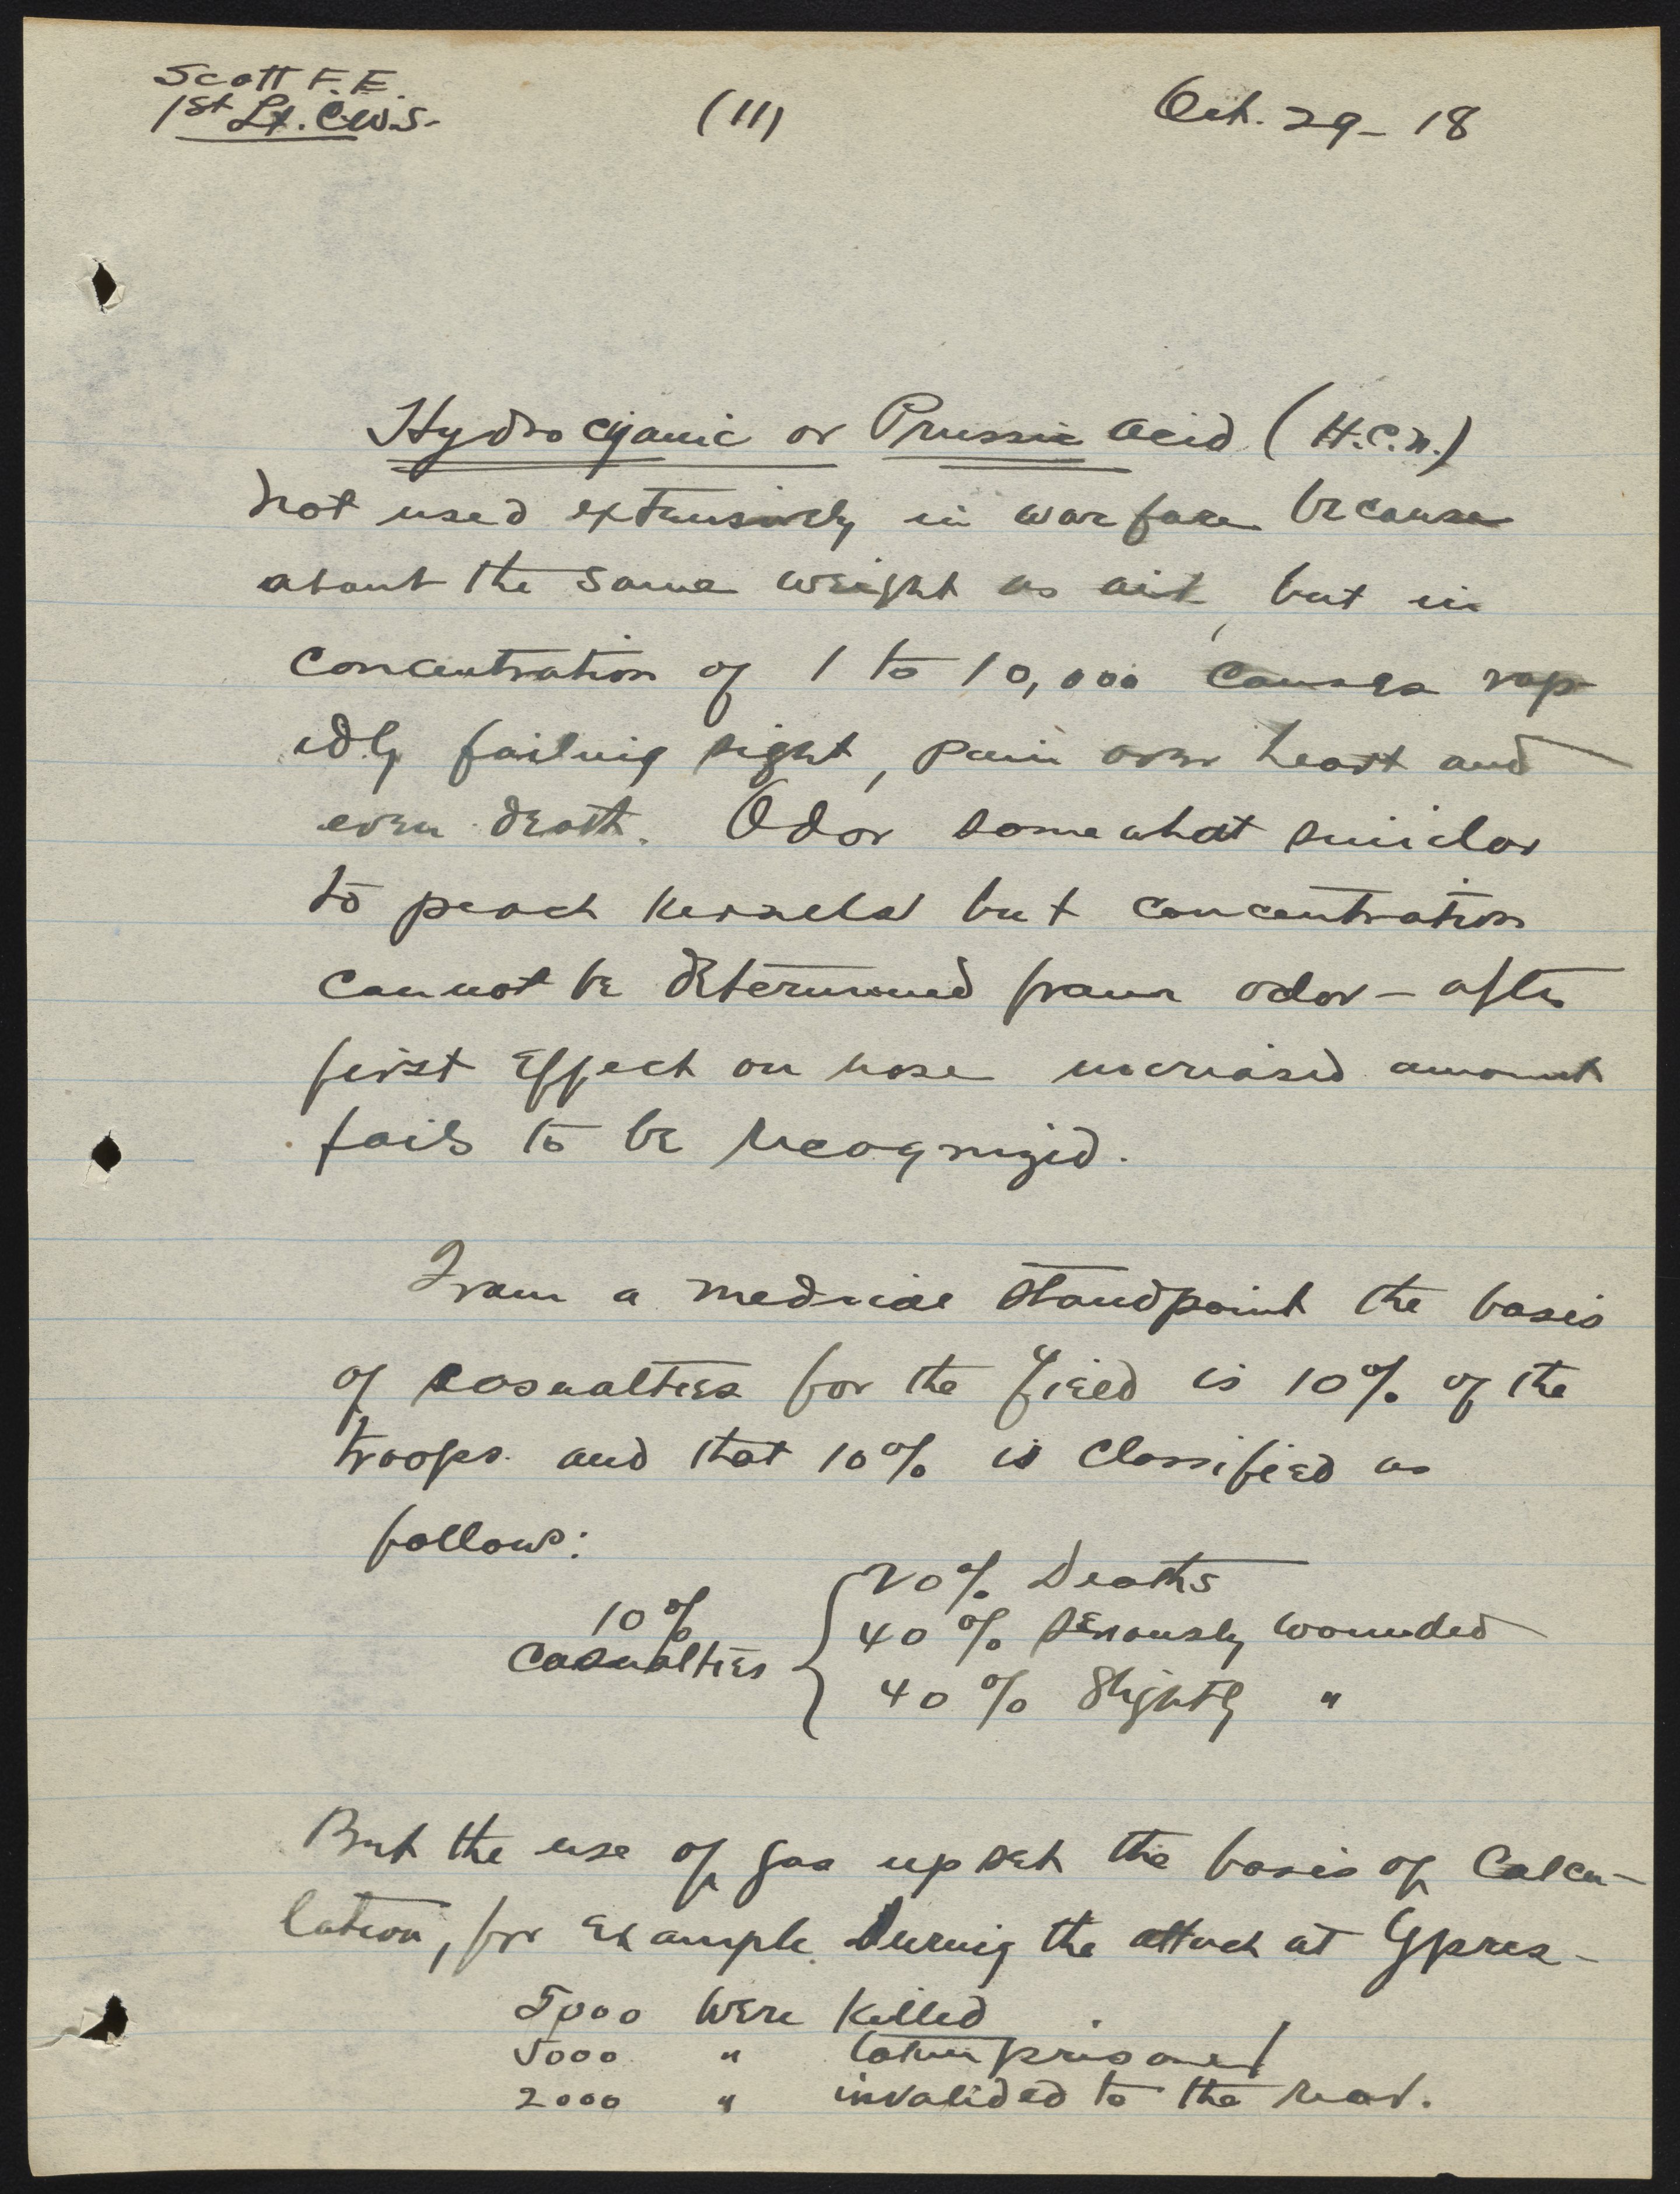 Scott F. E.
1st Lt. C.W.S.
(11)
Oct. 29 - 18
Hydrocyanic or Prussic Acid (H.C.N.)
Not used extensively in warfare because
about the same weight as air, but in
concentration of 1 to 10,000 causes rap
idly failing sight, pain over heart and
even death. Odor somewhat similar
to peach kernels but concentration
cannot be determined from odor - after
first effect on nose increased amount
fails to be recognized.
From a medical standpoint the basis
of casualties for the field is 10% of the
troops. and that 10% is classified as
follows:
20% Deaths
10%
40% seriously wounded
Casualties
40% Slightly "
But the use of gas upset the basis of Calcu-
lation, for example. During the attack at Ypres -
5000 were killed
5000 " taken prisoner
2000 " invalided to the rear.